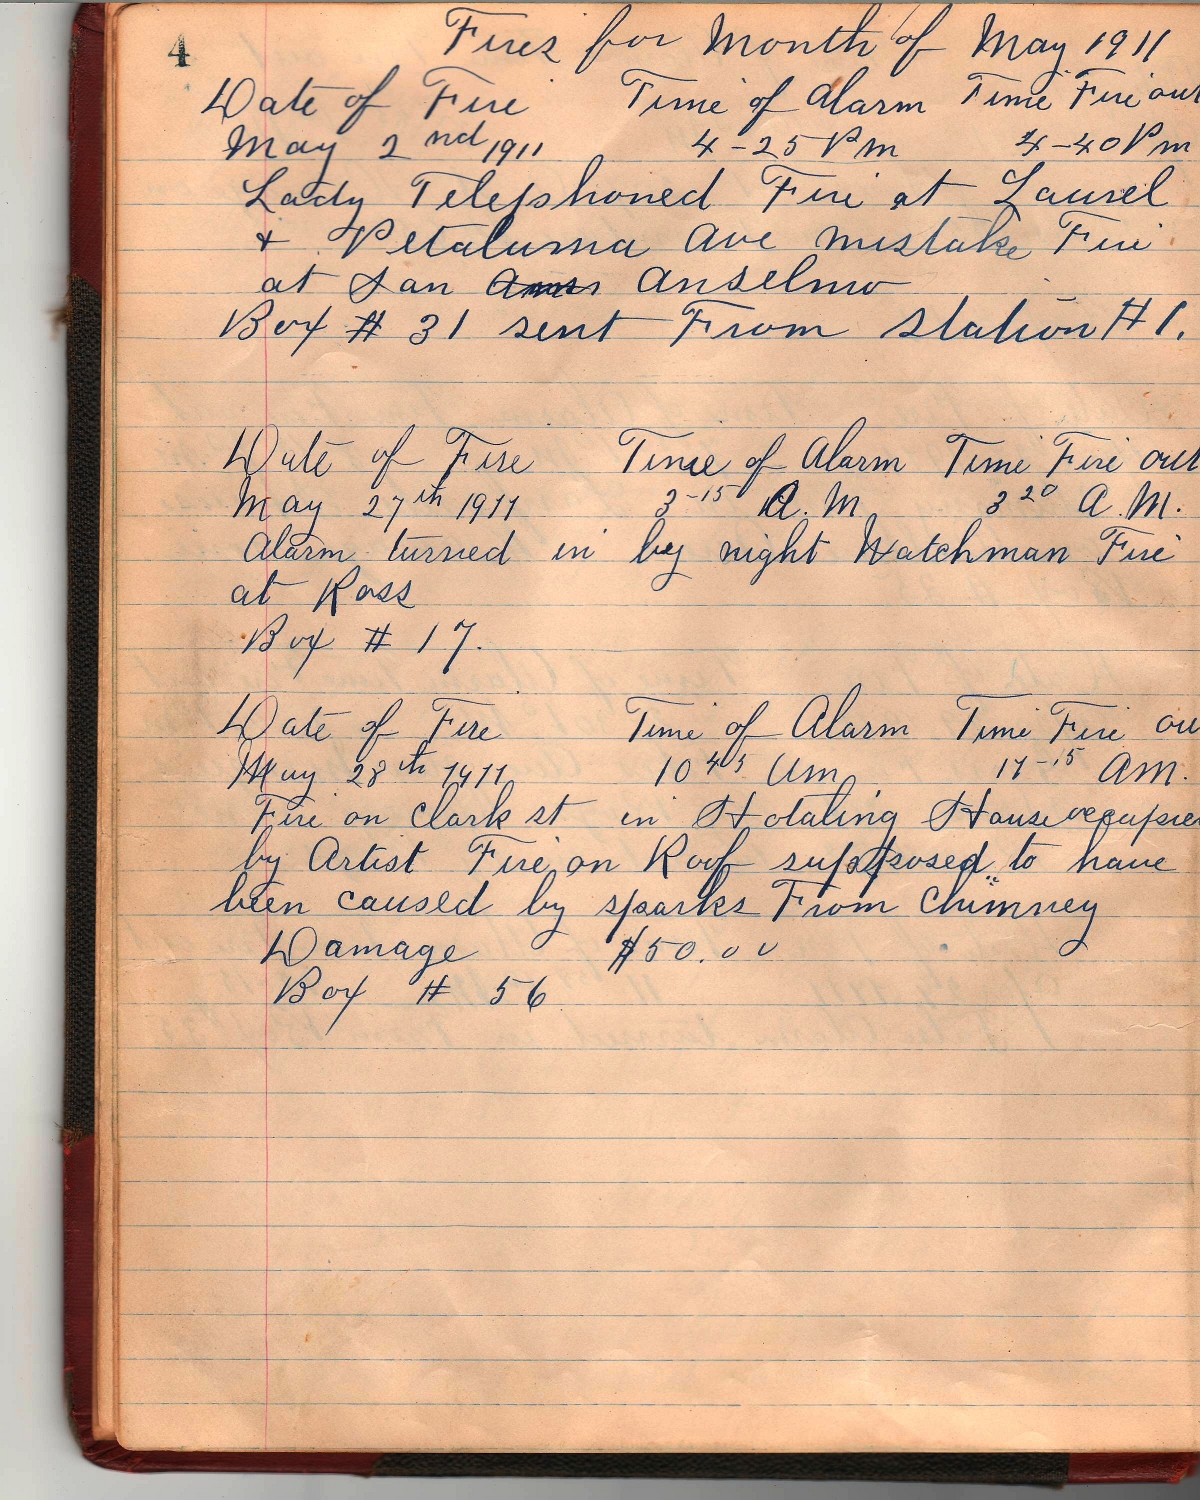 4
Fires for Month of May 1911
Date of Fire Time of Alarm Time Fire out
May 2nd 1911 4-25 Pm 4-40 Pm
Lady Telephoned Fire at Laurel
+ Petaluma Ave mistake Fire
at San Anselmo
Box # 31 sent From station # 1.
Date of Fire Time of Alarm Time Fire out
May 27th 1911 3-15 A.M. 3 20 A.M.
Alarm turned in by night Watchman Fire
at Ross
Box # 17.
Date of Fire Time of Alarm Time Fire ou
May 28th 1911 10 45 Am 11-15 AM.
Fire on Clark st in Hotaling House occupie
by Artist Fire on Roof supposed to have
been caused by sparks From Chimney
Damage $50.00
Box # 56